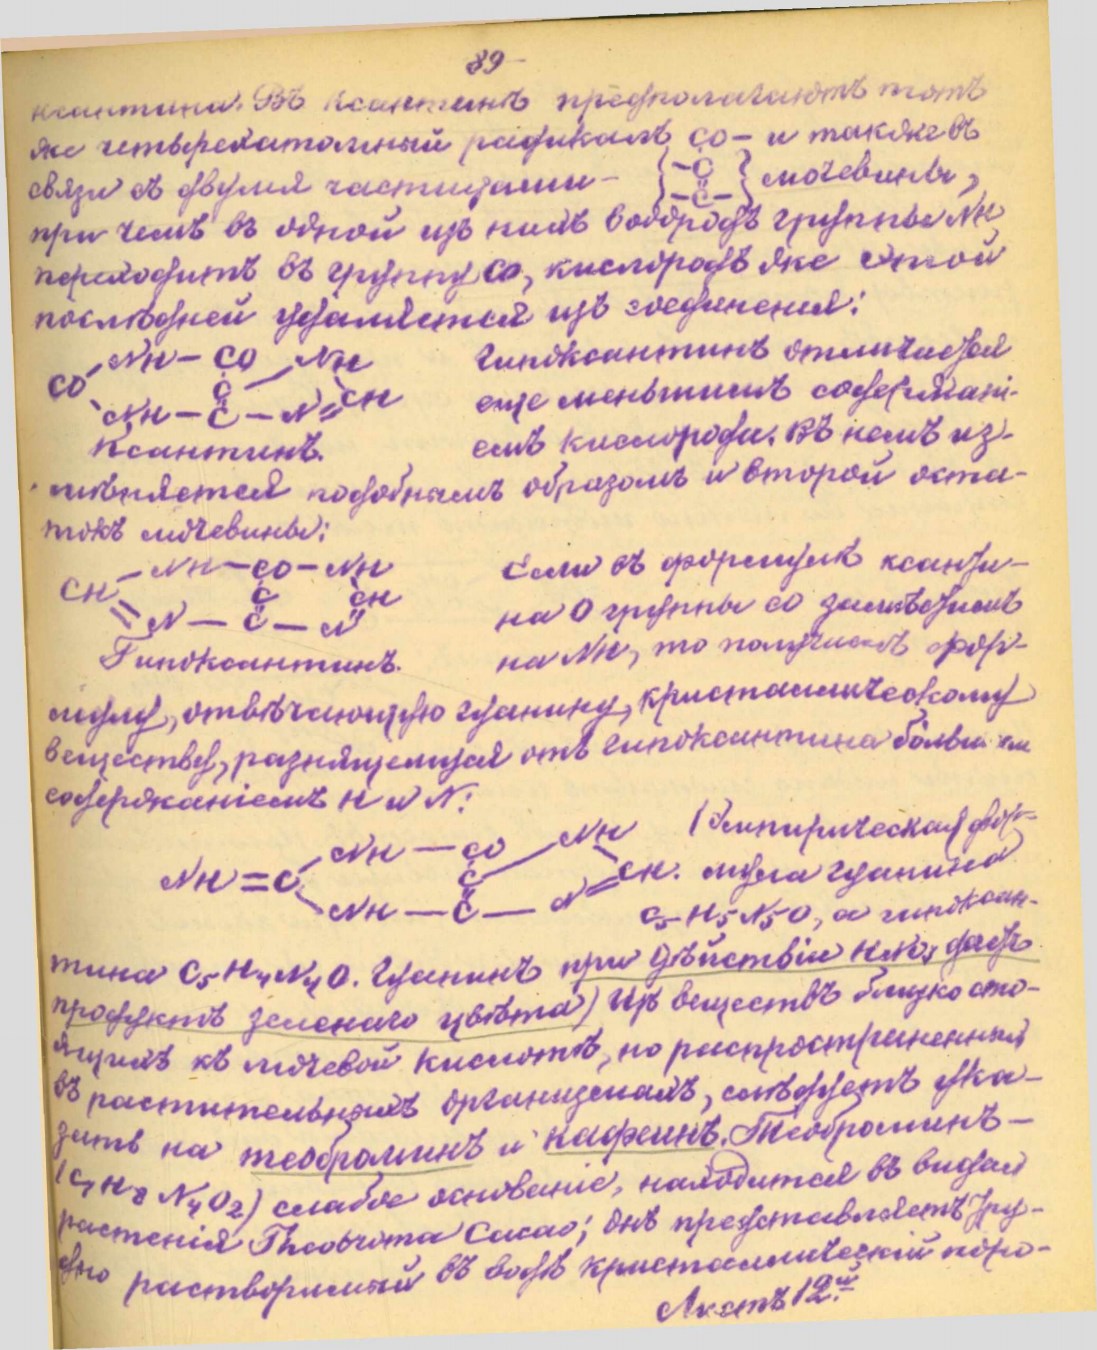 89
ксантина. Въ ксантинѣ предполагаютъ тотъ
же четырехатомный радикалъ CO — и также въ
связи съ двумя частицами — {–C̈–C–} мочевины,
при чемъ въ одной изъ нихъ водородъ группы NH
переходитъ въ группу CO, кислородъ же этой
послѣдней удаляется изъ соединенія:
NH — CO NH Гипоксантинъ отличается
CO C CH еще меньшимъ содержані-
NH — C — N емъ кислорода. Въ немъ из-
Ксантинъ.
мѣняется подобнымъ образомъ и второй оста-
токъ мочевины:
NH — CO — NH Если въ формулѣ ксанти-
CH C CH на O группы CO замѣстимъ
N — C — N на NH, то получимъ фор-
Гипоксантинъ.
мулу, отвѣчающую гуанину, кристаллическому
веществу, разнящемуся отъ гипоксантина большимъ
содержаніемъ H и N:
NH — CO NH (Эмпирическая фор-
NH = C C CH. мула гуанина
NH — C — N C5H5N5O, а гипоксан-
тина C5H4N4O. Гуанинъ при дѣйствіи HNO3 даетъ
продуктъ зеленаго цвѣта) Изъ веществъ близко сто-
ящихъ къ мочевой кислотѣ, но распространенныхъ
въ растительныхъ организмахъ, слѣдуетъ ука-
зать на теоброминъ и кафеинъ. Теоброминъ —
(C7H8N4O2) слабое основаніе, находится въ видѣ
растенія Theobroma Cacao; онъ представляетъ тру-
дно растворимый въ водѣ кристаллическій поро-
Листъ 12й